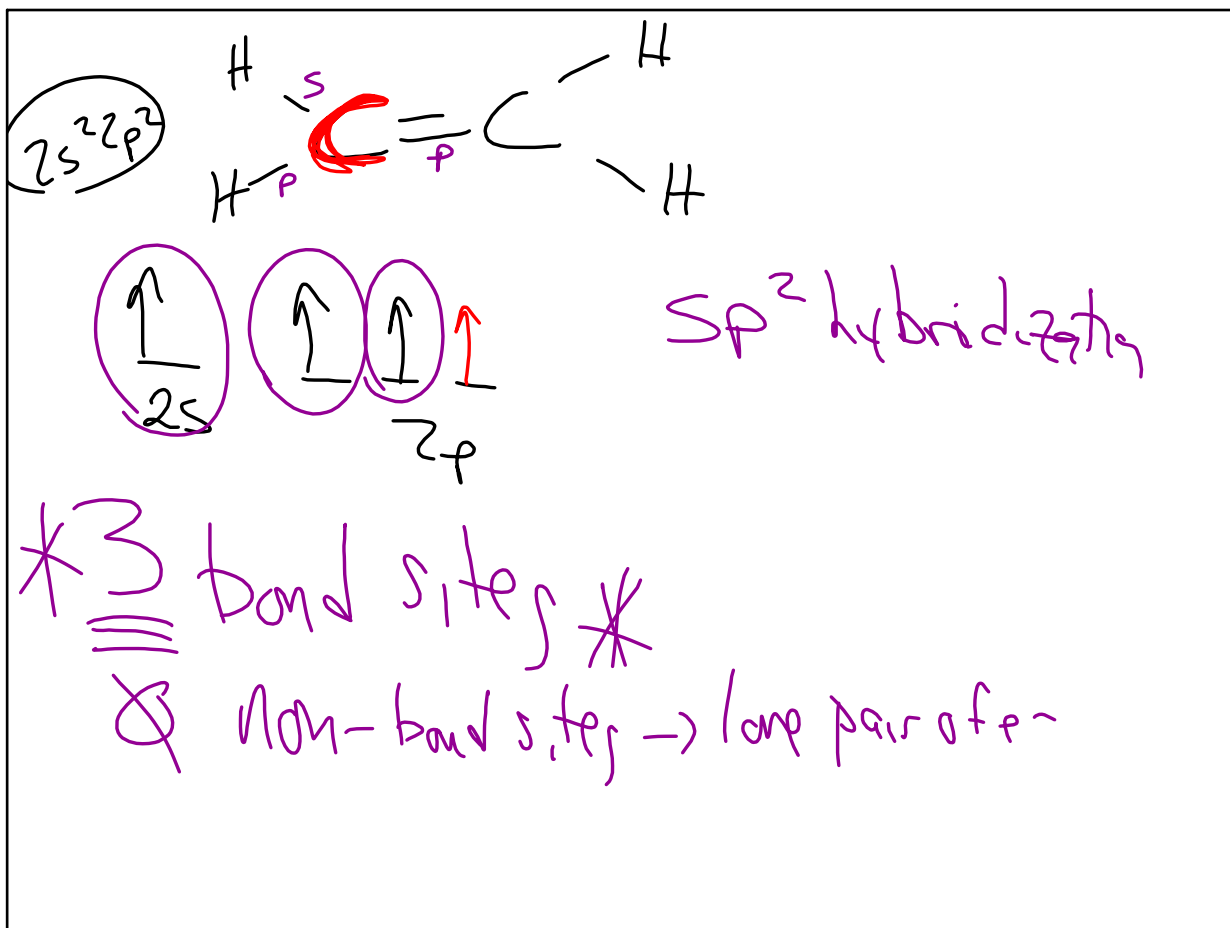 H H
2s²2p² s C = C
H p p H
2s 2p
sp² hybridization
*3 bond sites*
0 non-bond sites → lone pair of e-